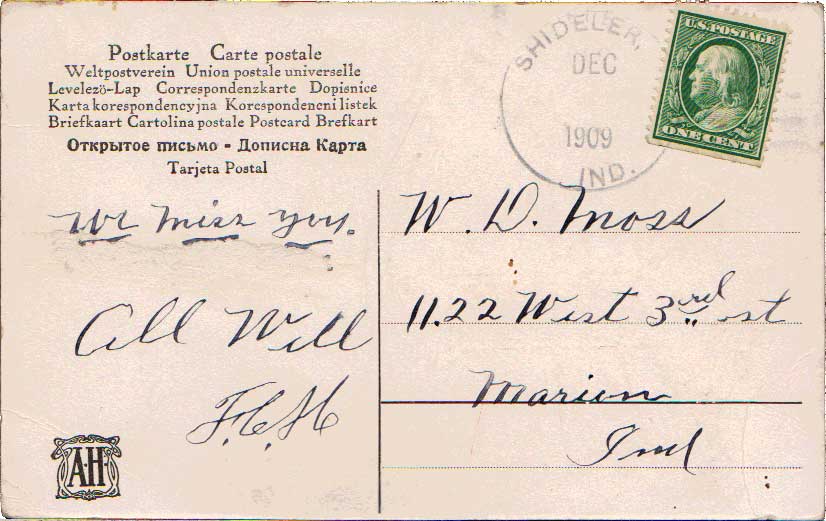 Postkarte Carte postale
Weltpostverein Union postale universelle
Levelezö-Lap Correspondenzkarte Dopisnice
Karta korespondencyjna Korespondencni listek
Briefkaart Cartolina postale Postcard Brefkart
Открытое письмо - Дописна Карта
Tarjeta Postal
SHIDELER,
DEC
1909
IND.
U.S. POSTAGE
ONE CENT
We miss you.
All Well
F.C.H
A·H·
W. D. Moss
1122 West 3rd st
Marion
Ind